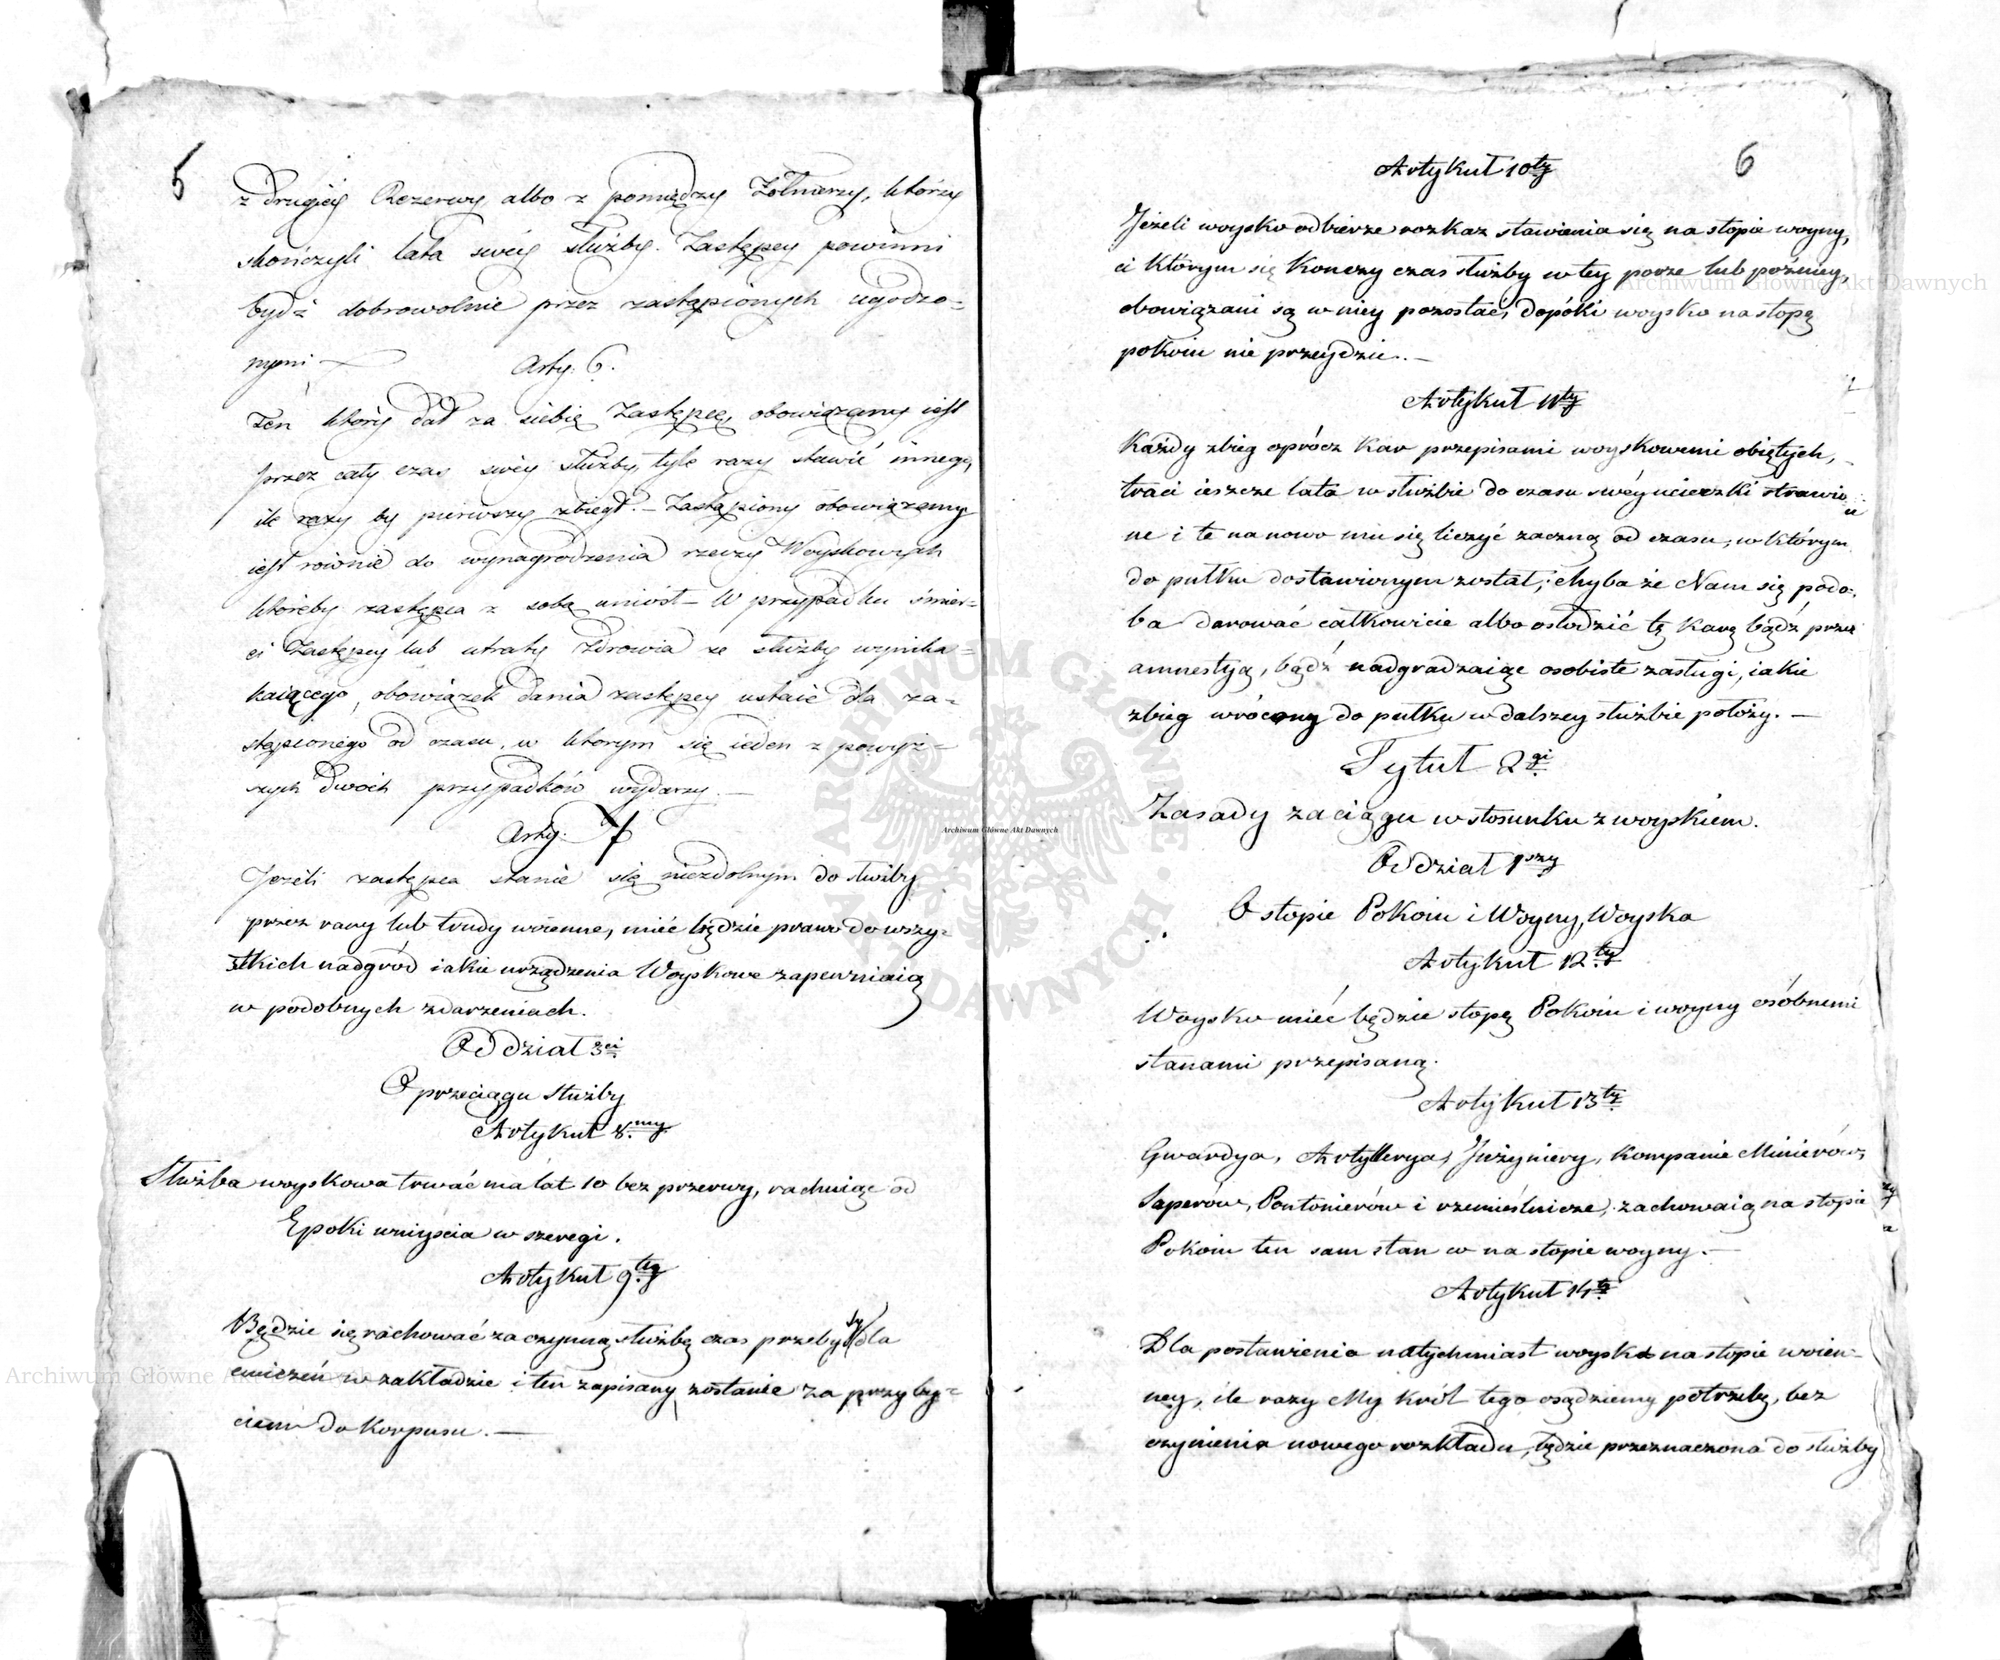 5
z drugiéy Rezerwy albo z pomiędzy Żołnierzy, którzy
skończyli lata swéy służby. Zastępcy powinni
bydź dobrowolnie przez zastąpionych ugodzo-
nymi —
Arty: 6.
Ten który dał za siebie Zastępcę, obowiązany iest
przez cały czas swéy służby, tyle razy stawić innego,
ile razy by pierwszy zbiegł. — Zastąpiony obowiązany
iest rownie do wynagrodzenia rzeczy Woyskowych
któreby zastępca z sobą uniósł — W przypadku śmier-
ci Zastępcy lub utraty Zdrowia ze służby wynika-
kaiącego, obowiązek dania zastępcy ustaie dla za-
stąpionego od czasu, w którym się ieden z powyż-
szych dwóch przypadków wydarzy. —
Arty: 7
Jeżeli zastępca stanie się niezdolnym do służby
przez rany lub trudy woienne, mieć będzie prawo do wszy-
stkich nadgród iakie urządzenia Woyskowe zapewniaią
w podobnych zdarzeniach.
Oddział 3ci
O przeciągu służby
Artykuł 8.my
Służba woyskowa trwać ma lat 10 bez przerwy, rachuiąc od
Epoki wniyścia w szeregi.
Artykuł 9.ty
Będzie się rachować za czynną służbę czas przebyty dla
ćwiczeń w zakładzie i ten zapisany zostanie za przyby-
ciem do Korpusu. —
6
Artykuł 10ty
Jeżeli woysko odbierze rozkaz stawienia się na stopie woyny,
ci którym się kończy czas służby w tey porze lub poźniey,
obowiązani są w niey pozostać, dopóki woysko na stopę
pokoiu nie przeydzie. —
Artykuł 11ty
Każdy zbieg oprócz kar przepisami woyskowemi obiętych,
traci ieszcze lata w służbie do czasu swéy ucieczki strawio
ne i te na nowo mu się liczyć zaczną od czasu, w którym
do pułku dostawionym został; chyba że Nam się podo-
ba darować całkowicie albo osłodzić tę karę bądź przez
amnestyą, bądź nadgradzaiąc osobiste zasługi, iakie
zbieg wrócony do pułku w dalszey służbie położy. —
Tytuł 2gi
Zasady zaciągu w stosunku z woyskiem.
Oddział 1szy
O stopie Pokoiu i Woyny, Woyska
Artykuł 12.ty
Woysko mieć będzie stopę Pokoiu i woyny osóbnemi
stanami przepisaną.
Artykuł 13ty
Gwardya, Artyllerya, Inżyniery, kompanie Minierów,
Saperów, Pontonierów i rzemieślnicze, zachowaią na stopie
Pokoiu ten sam stan co na stopie woyny. —
Artykuł 14ty
Dla postawienia natychmiast woyska na stopie woien-
ney, ile razy My Król tego osądziemy potrzebę, bez
czynienia nowego rozkładu, będzie przeznaczona do służby
Archiwum Główne Akt Dawnych
Archiwum Główne Akt Dawnych
Archiwum Główne Akt Dawnych
ARCHIWUM GŁÓWNE AKT DAWNYCH